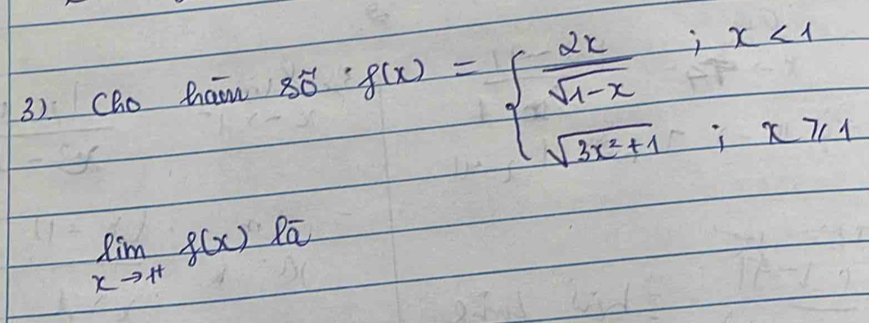 3). Cho hàm số : f(x) = { 2x / √(1-x) ; x < 1
√(3x²+1) ; x ⩾ 1
lim f(x) là
x → 1⁺